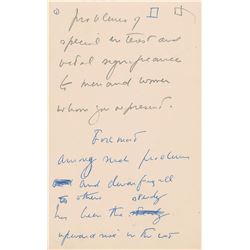 problems of
special interest and
vital significance
to men and women
whom you represent.
Foremost
among such problems
and dwarfing all
to others steady
has been the steady
upward rise in the cost